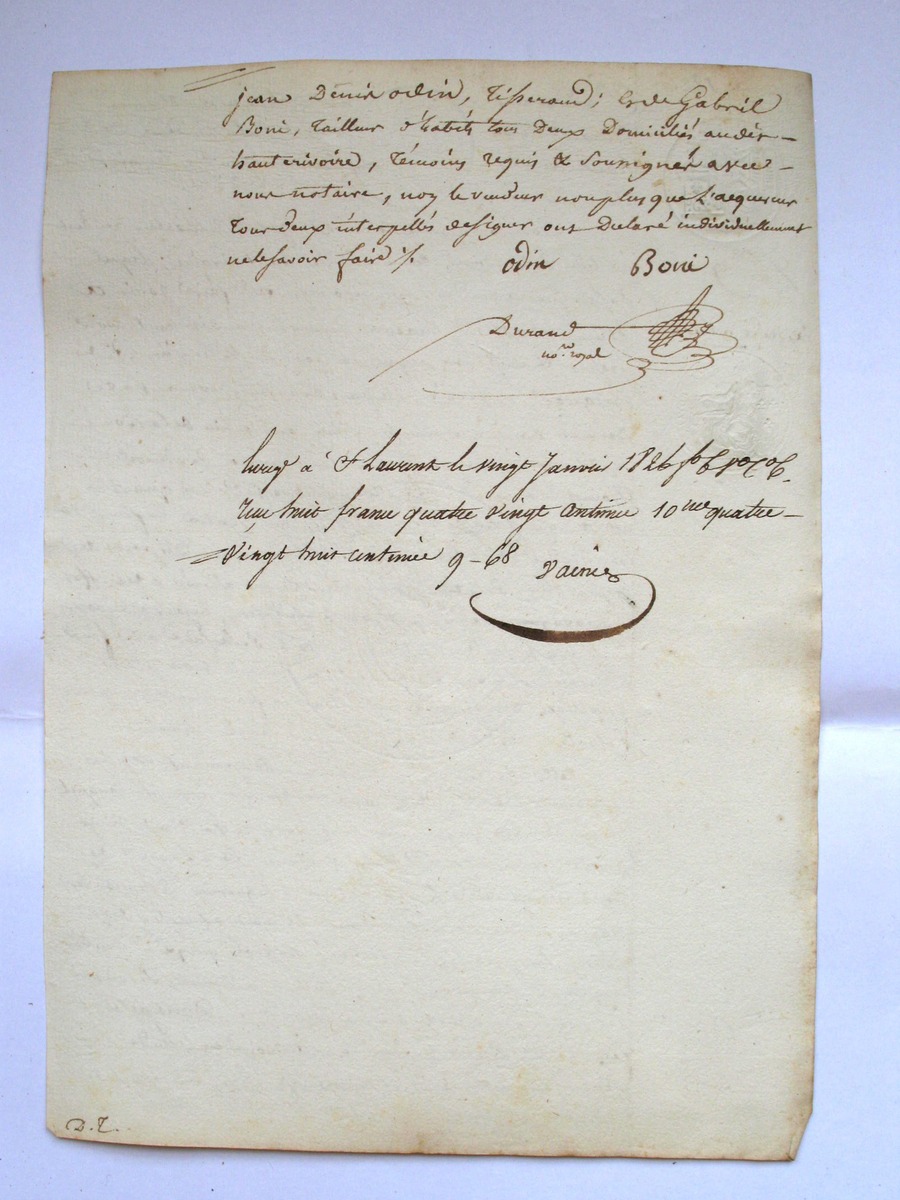 jean Denis odin, Tisserand; & de Gabriel
Boni, tailleur d'habits tous Deux Domiciliés audit
hauterivoire, Témoins requis & Soussignés avec
nous notaire, non le vendeur non plus que L'acquereur
Tous deux interpellés de signer ont Déclaré individuellement
ne le savoir faire ./.
odin Boni
Durand
no.re royal
Enreg à St Laurent le vingt Janvier 1826 fo 6 Ro Co 6.
reçu huit francs quatre vingt centimes 10me quatre
vingt huit centimes 9-68
D. T.